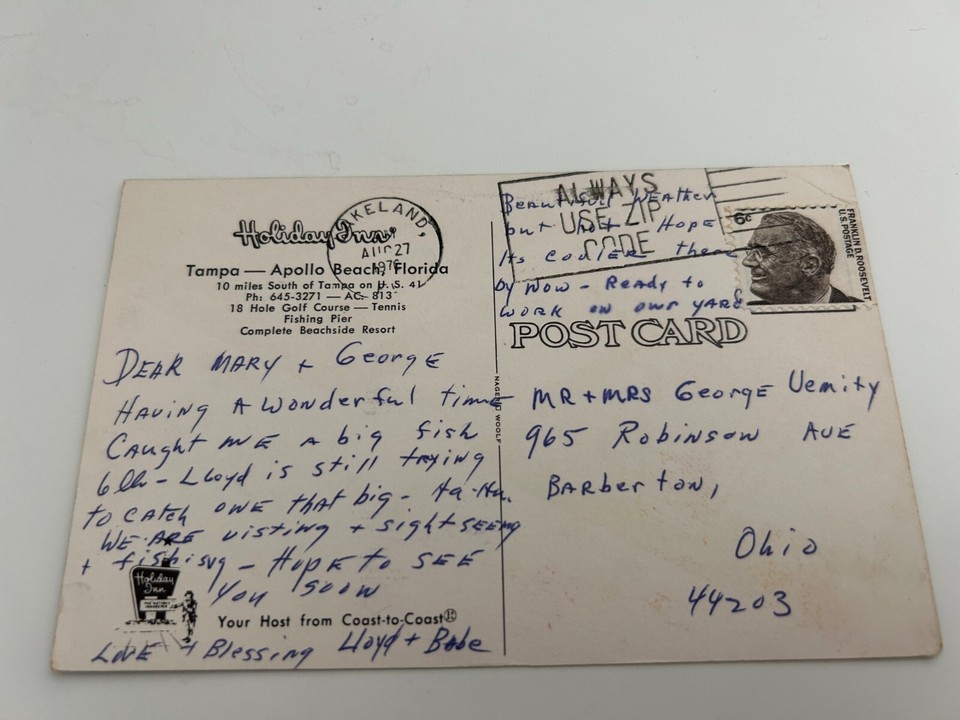 Holiday Inn®
Tampa — Apollo Beach, Florida
10 miles South of Tampa on U.S. 41
Ph: 645-3271 — AC: 813
18 Hole Golf Course — Tennis
Fishing Pier
Complete Beachside Resort
AKELAND,
AUG 27
DEAR MARY + George
HAVING A wonderful time
CAUGHT ME A big fish
6lb - Lloyd is still trying
to CATCH ONE that big - Ha-Ha.
WE ARE visting + sightseeing
+ fishing - Hope to SEE
you soon
Holiday
Inn
Your Host from Coast-to-Coast®
LOVE + Blessing Lloyd + Babe
ALWAYS
USE ZIP
CODE
Beautiful WEATHER
but hot Hope
Its cooler there
by now - Ready to
WORK ON our YARD
6c
FRANKLIN D. ROOSEVELT
U.S. POSTAGE
POST CARD
MR + MRS George Vemity
965 Robinson AVE
BARberton,
Ohio
44203